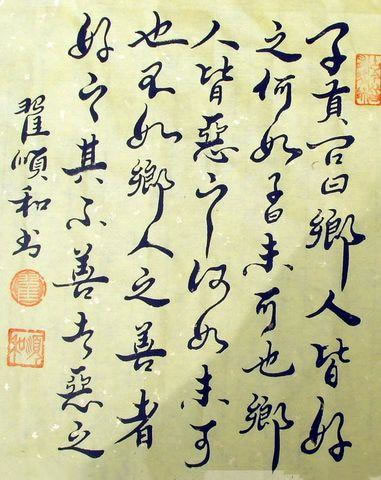 子貢问曰鄉人皆好
之何如子曰未可也鄉
人皆惡之何如未可
也不如鄉人之善者
好之其不善者惡之
翟順和书
翟
順和